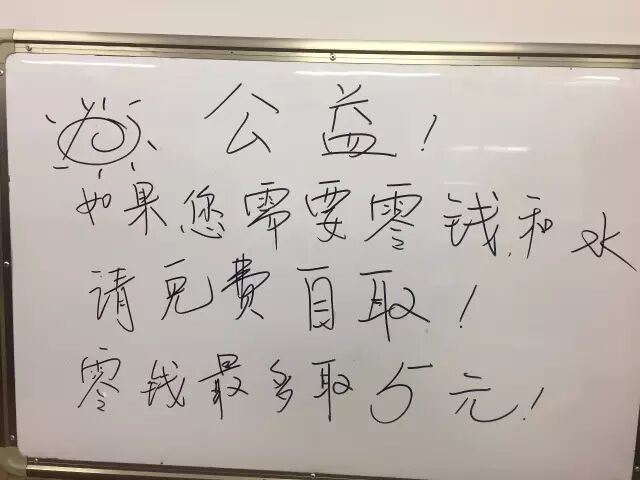 公益!
如果您需要零钱,和水
请免费自取!
零钱最多取5元!